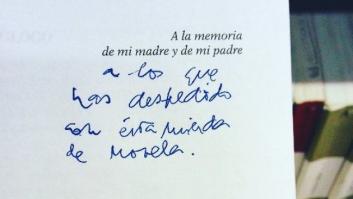 A la memoria
de mi madre y de mi padre
a los que
has despedido
con ésta mierda
de novela.